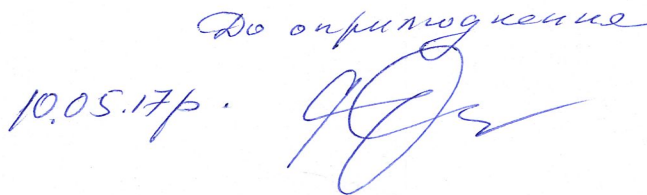 До оприлюднення
10.05.17р.